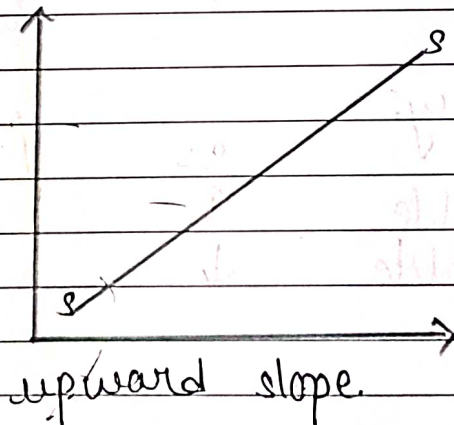 S
S
upward slope.